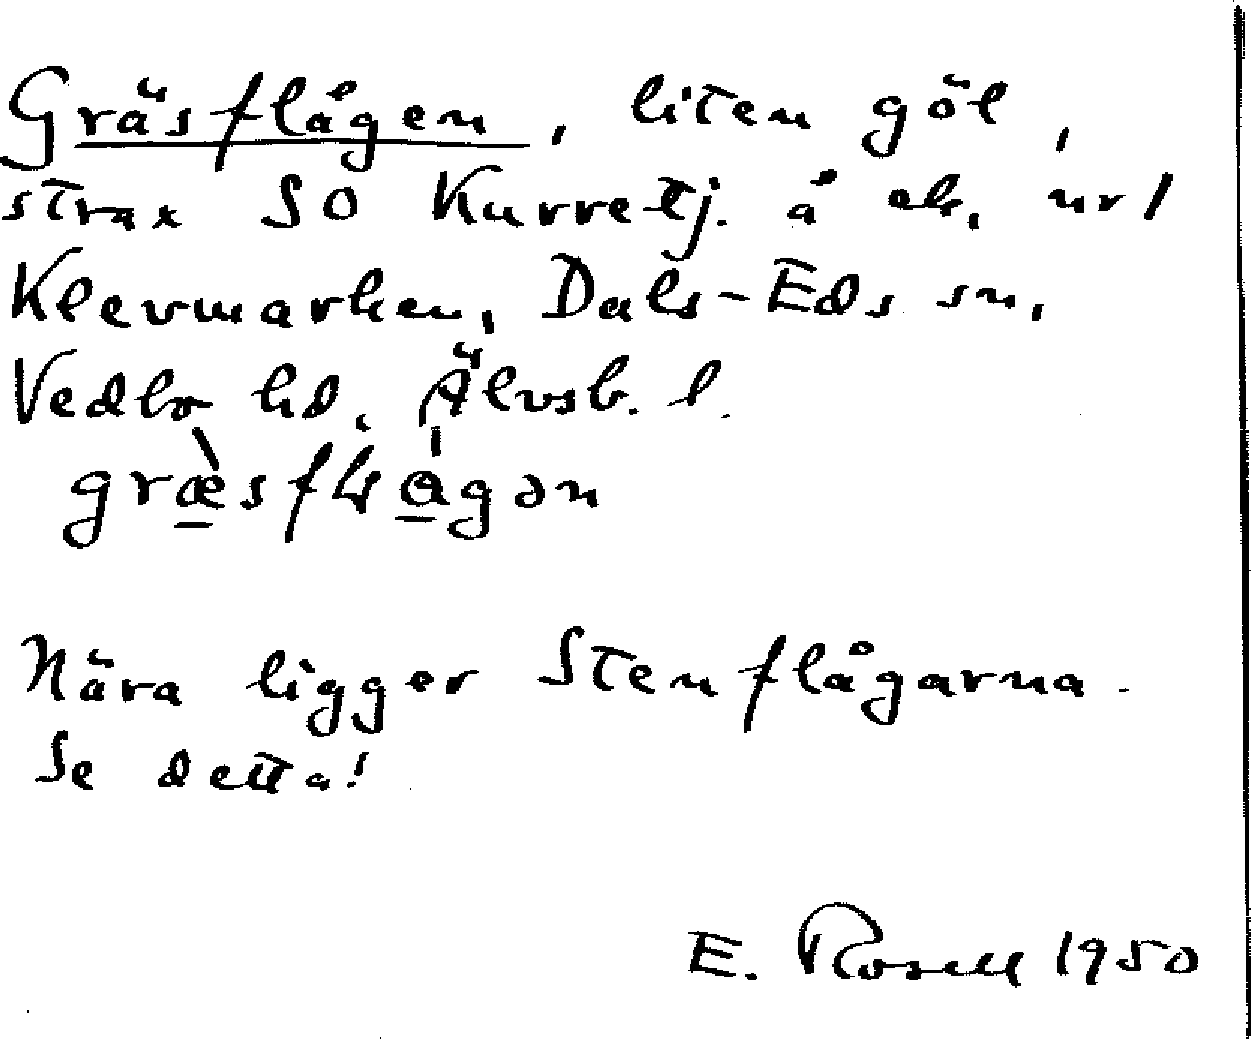 Gräsflågen, liten göl,
strax SO Kurretj. å ek,
Klevmarken, Dals-Eds sn,
Vedbo hd. Älvsb. l.
Nära ligger Stenflågarna.
Se detta!
E. Rosell 1950